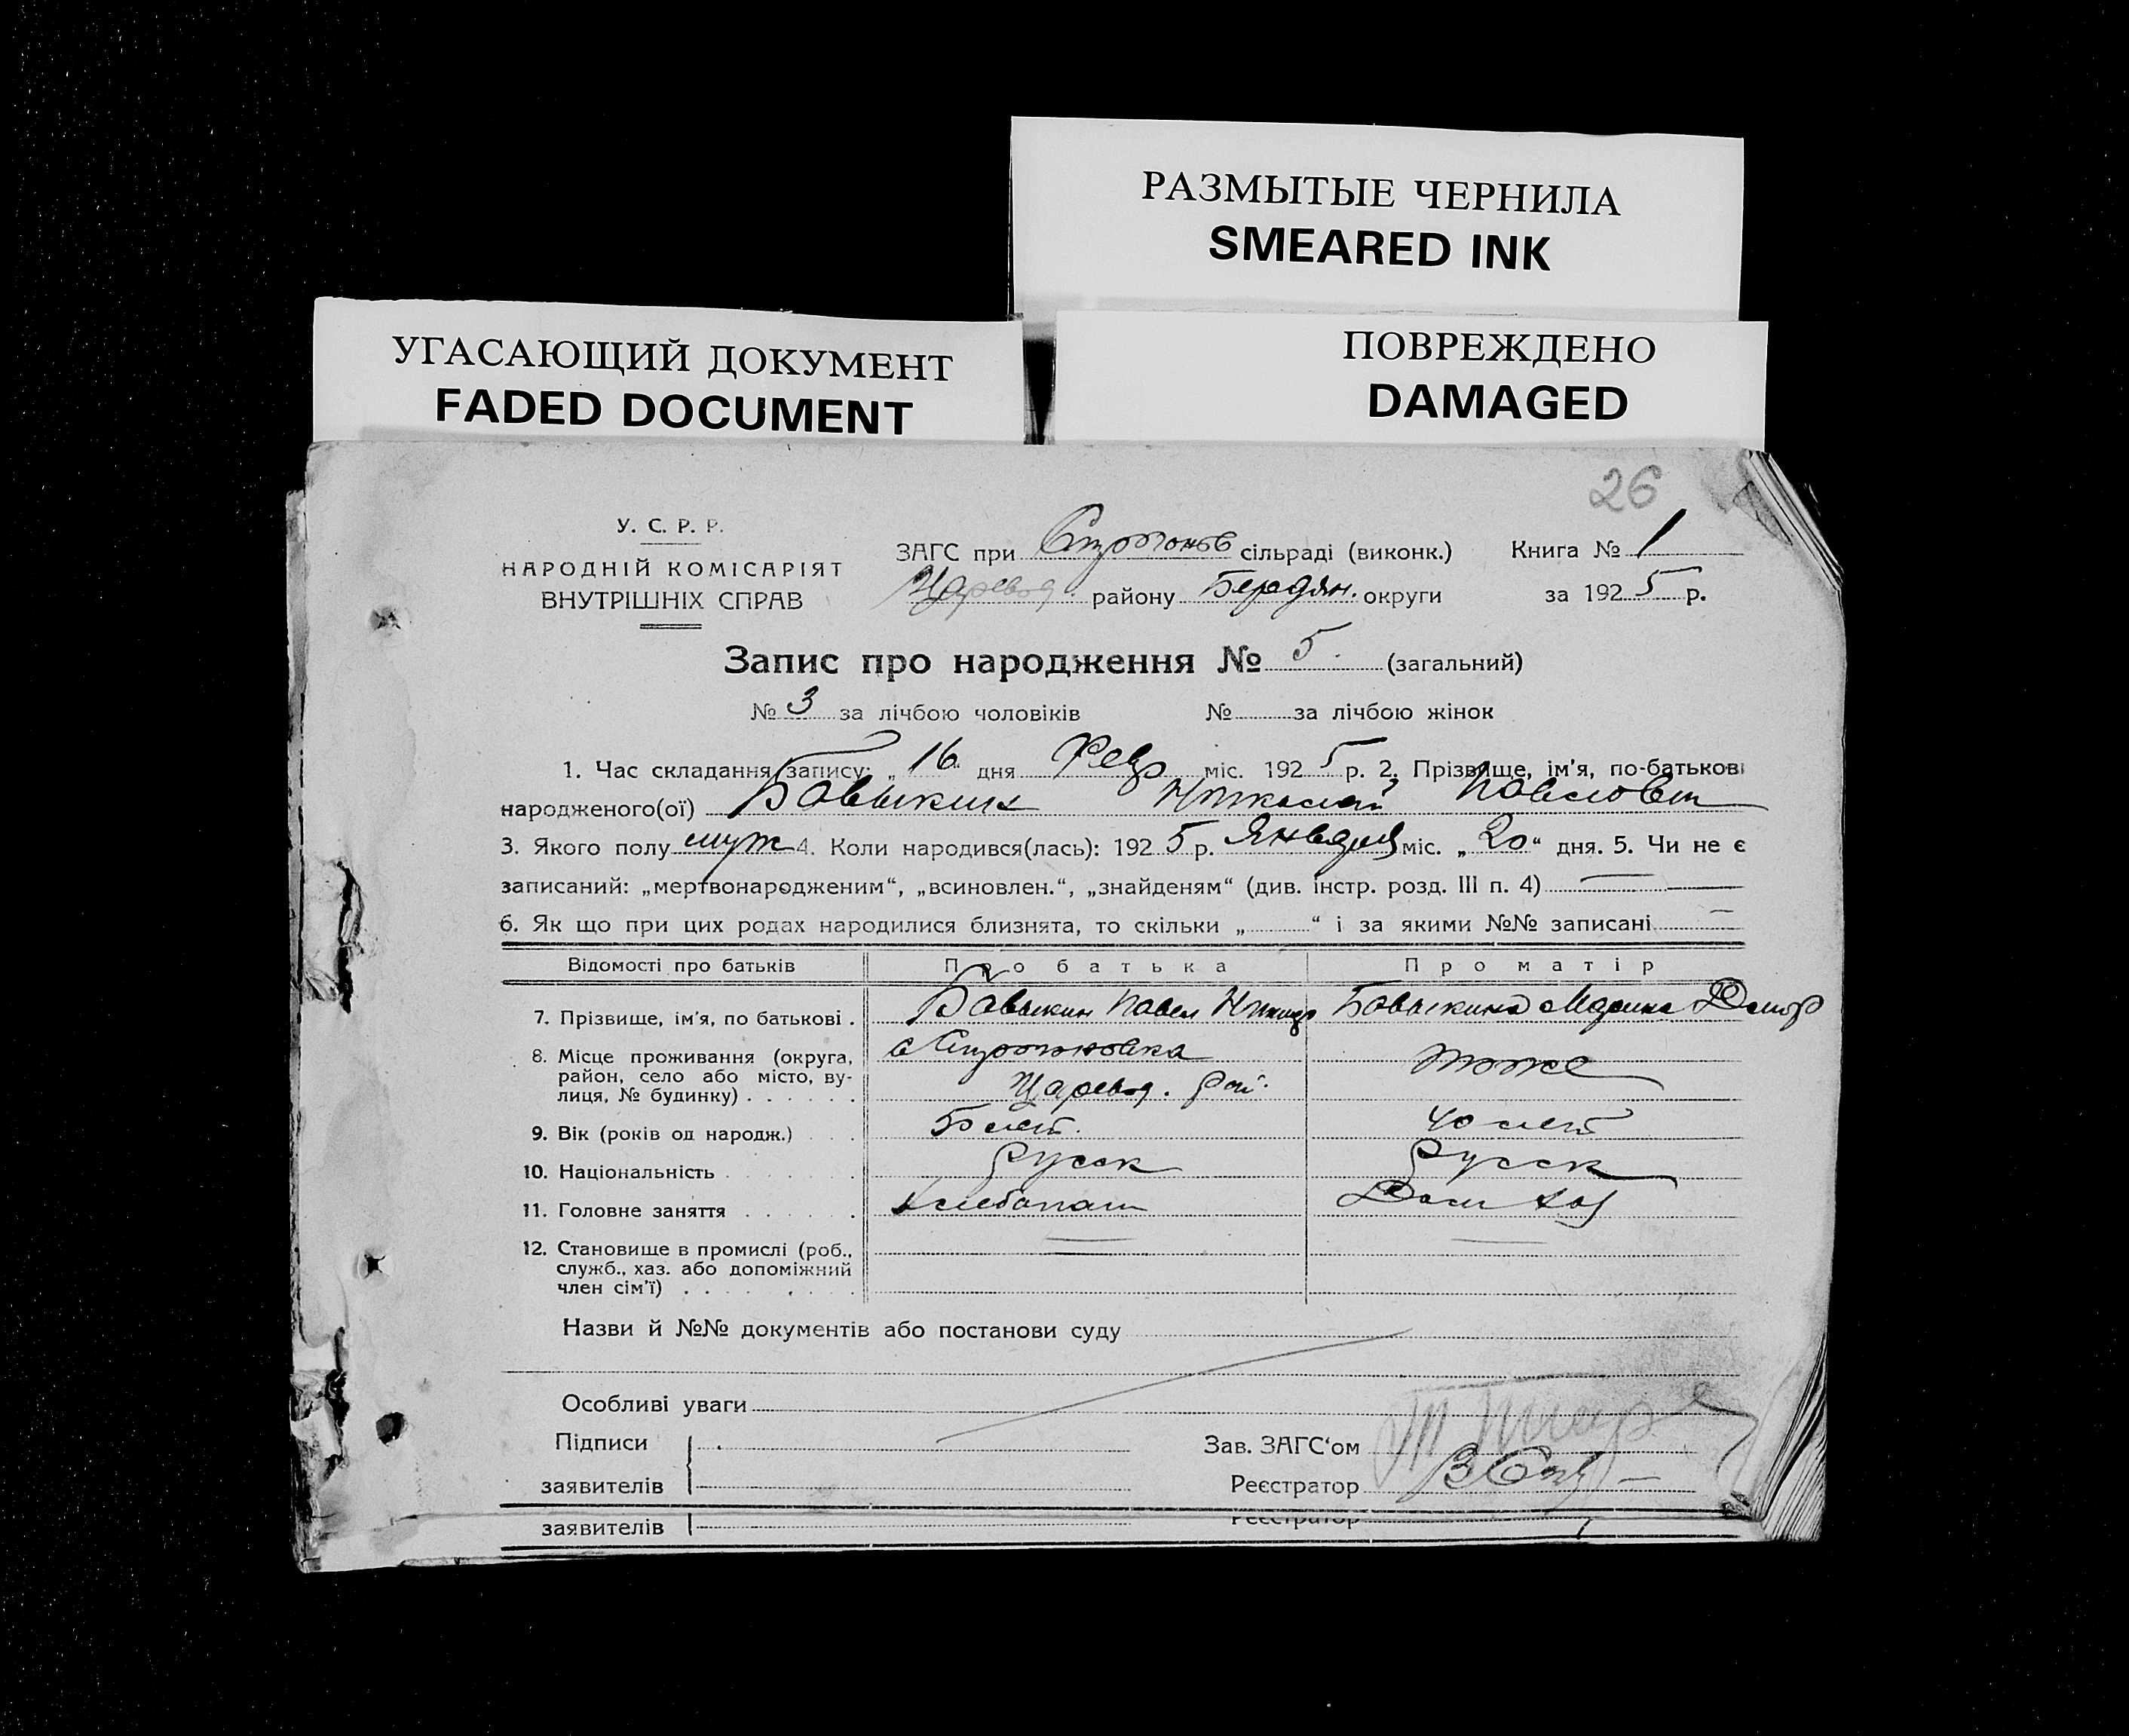 РАЗМЫТЫЕ ЧЕРНИЛА
SMEARED INK
УГАСАЮЩИЙ ДОКУМЕНТ
FADED DOCUMENT
ПОВРЕЖДЕНО
DAMAGED
26
У. С. Р. Р.
НАРОДНІЙ КОМІСАРІЯТ
ВНУТРІШНІХ СПРАВ
ЗАГС при сільраді (виконк.) Книга № 1
Царевод. району Бердян. округи за 1925 р.
Запис про народження № 5. (загальний)
№ 3 за лічбою чоловіків № за лічбою жінок
1. Час складання запису: „16“ дня Февр міс. 1925 р. 2. Прізвище, ім'я, по-батькові
народженого(ої) Бавыкин Николай Павлович
3. Якого полу муж 4. Коли народився(лась): 1925 р. Января міс. „20“ дня. 5. Чи не є
записаний: „мертвонародженим“, „всиновлен.“, „знайденям“ (див. інстр. розд. III п. 4)
6. Як що при цих родах народилися близнята, то скільки „ “ і за якими №№ записані
Відомості про батьків Про батька Про матір
7. Прізвище, ім'я, по батькові . Бавыкин Павел Бавыкина Марина
8. Місце проживання (округа, район, село або місто, вулиця, № будинку) . . . . . . Царевод. рай. тоже
9. Вік (років од народж.) . . . лет. 40 лет
10. Національність . . . . . . Русск Русск
11. Головне заняття . . . . . . Хлебопаш Дом хоз
12. Становище в промислі (роб., служб., хаз. або допоміжний член сім'ї) . . . . . .
Назви й №№ документів або постанови суду
Особливі уваги
Підписи Зав. ЗАГС'ом
заявителів Реєстратор
заявителів Реєстратор